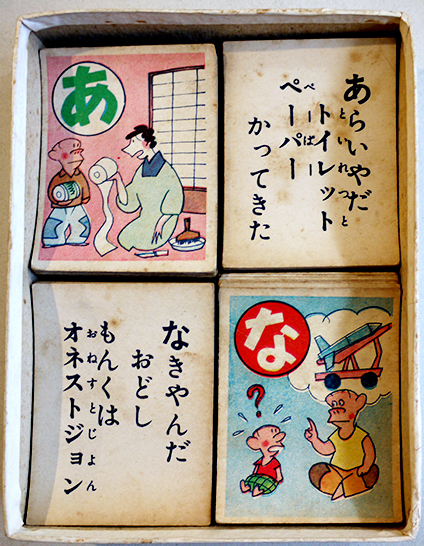 あ
あらいやだ
トイレット
といれつと
ペーパー
ぺーぱー
かってきた
なきやんだ
おどし
もんくは
オネストジョン
おねすとじよん
な
?